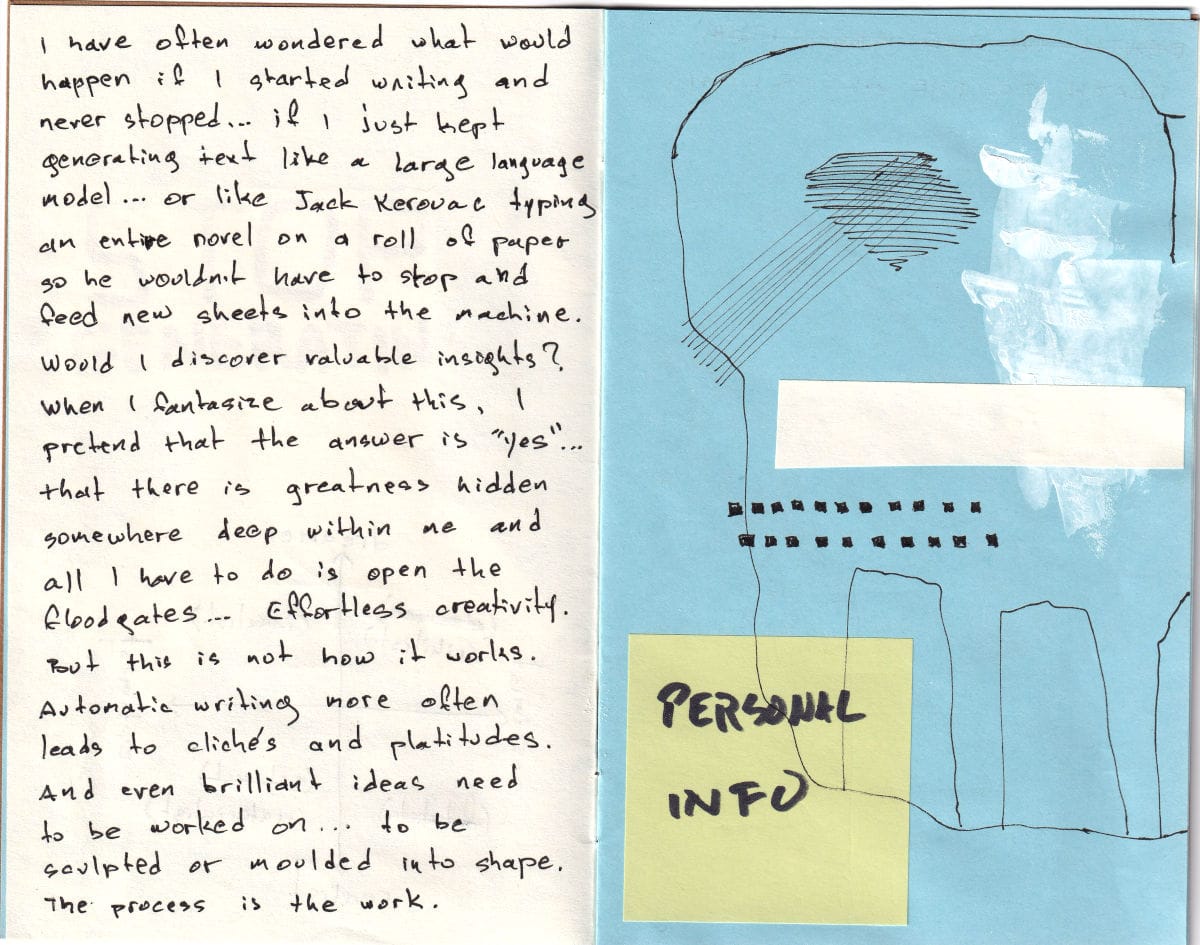 I have often wondered what would
happen if I started writing and
never stopped... if I just kept
generating text like a large language
model... or like Jack Kerouac typing
an entire novel on a roll of paper
so he wouldn't have to stop and
feed new sheets into the machine.
Would I discover valuable insights?
When I fantasize about this, I
pretend that the answer is "yes"...
that there is greatness hidden
somewhere deep within me and
all I have to do is open the
floodgates... Effortless creativity.
But this is not how it works.
Automatic writing more often
leads to clichés and platitudes.
And even brilliant ideas need
to be worked on... to be
sculpted or moulded into shape.
The process is the work.
PERSONAL
INFO